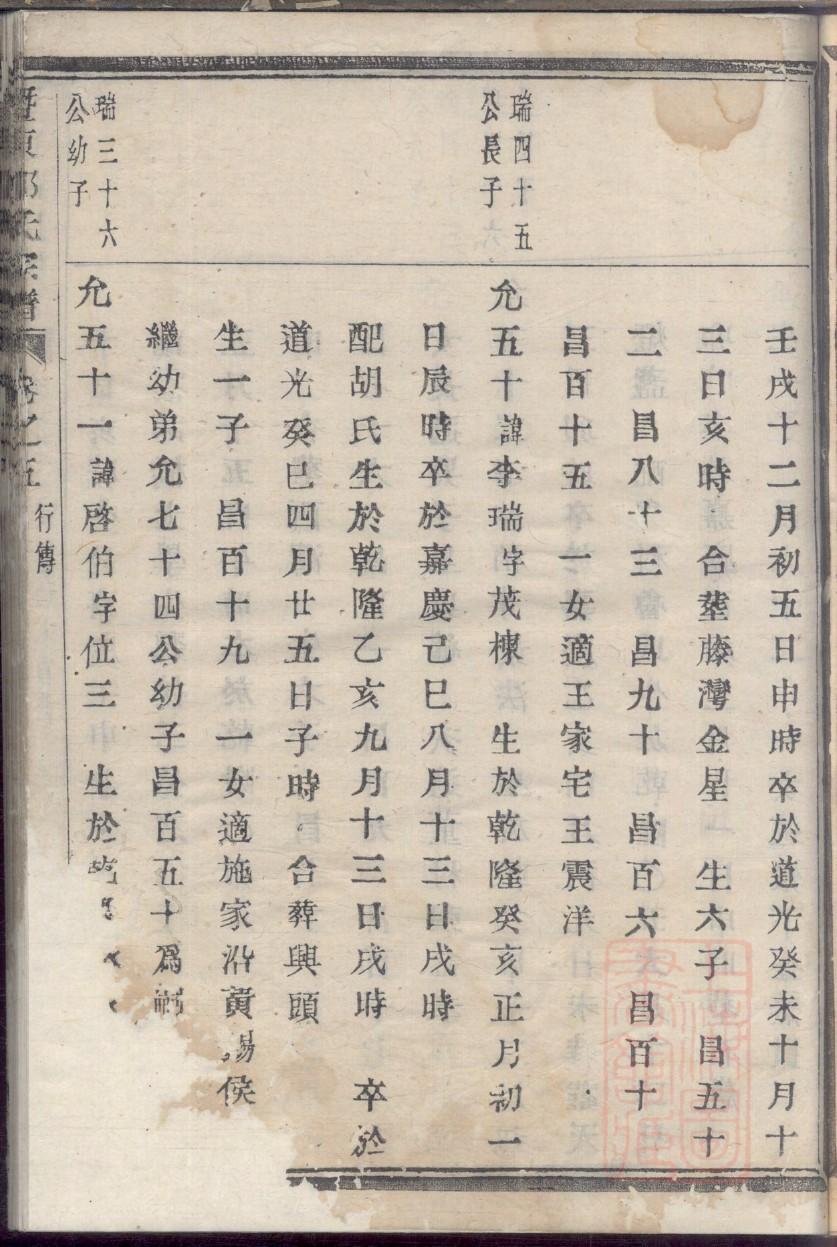 壬戌十二月初五日申時卒於道光癸未十月十
三日亥時　合塟藤灣金星　生六子　昌五十
二　昌八十三　昌九十　昌百六　昌百十
昌百十五　一女適王家宅王震洋
瑞四十五
公長子
允五十諱李瑞字茂棟　生於乾隆癸亥正月初一
日辰時卒於嘉慶己巳八月十三日戌時
配胡氏生於乾隆乙亥九月十三日戌時　卒於
道光癸巳四月廿五日子時　合葬興頭
生一子　昌百十九　一女適施家沿黃　侯
繼幼弟允七十四公幼子昌百五十爲嗣
瑞三十六
公幼子
允五十一諱啓伯字位三　生於
氏宗譜　卷之五　行傳